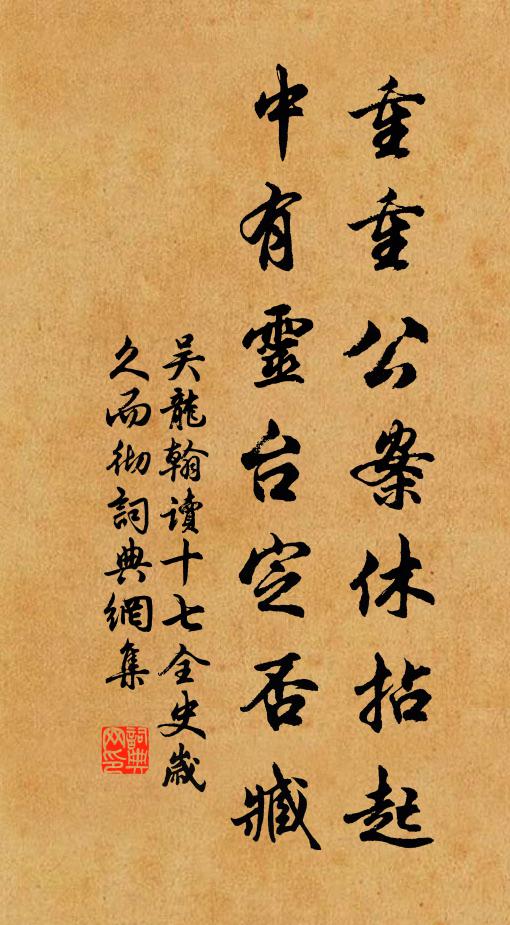 重重公案休拈起
中有靈台定否臧
吴龍翰讀十七全史歲
久而彻詞典網集
詞典網印